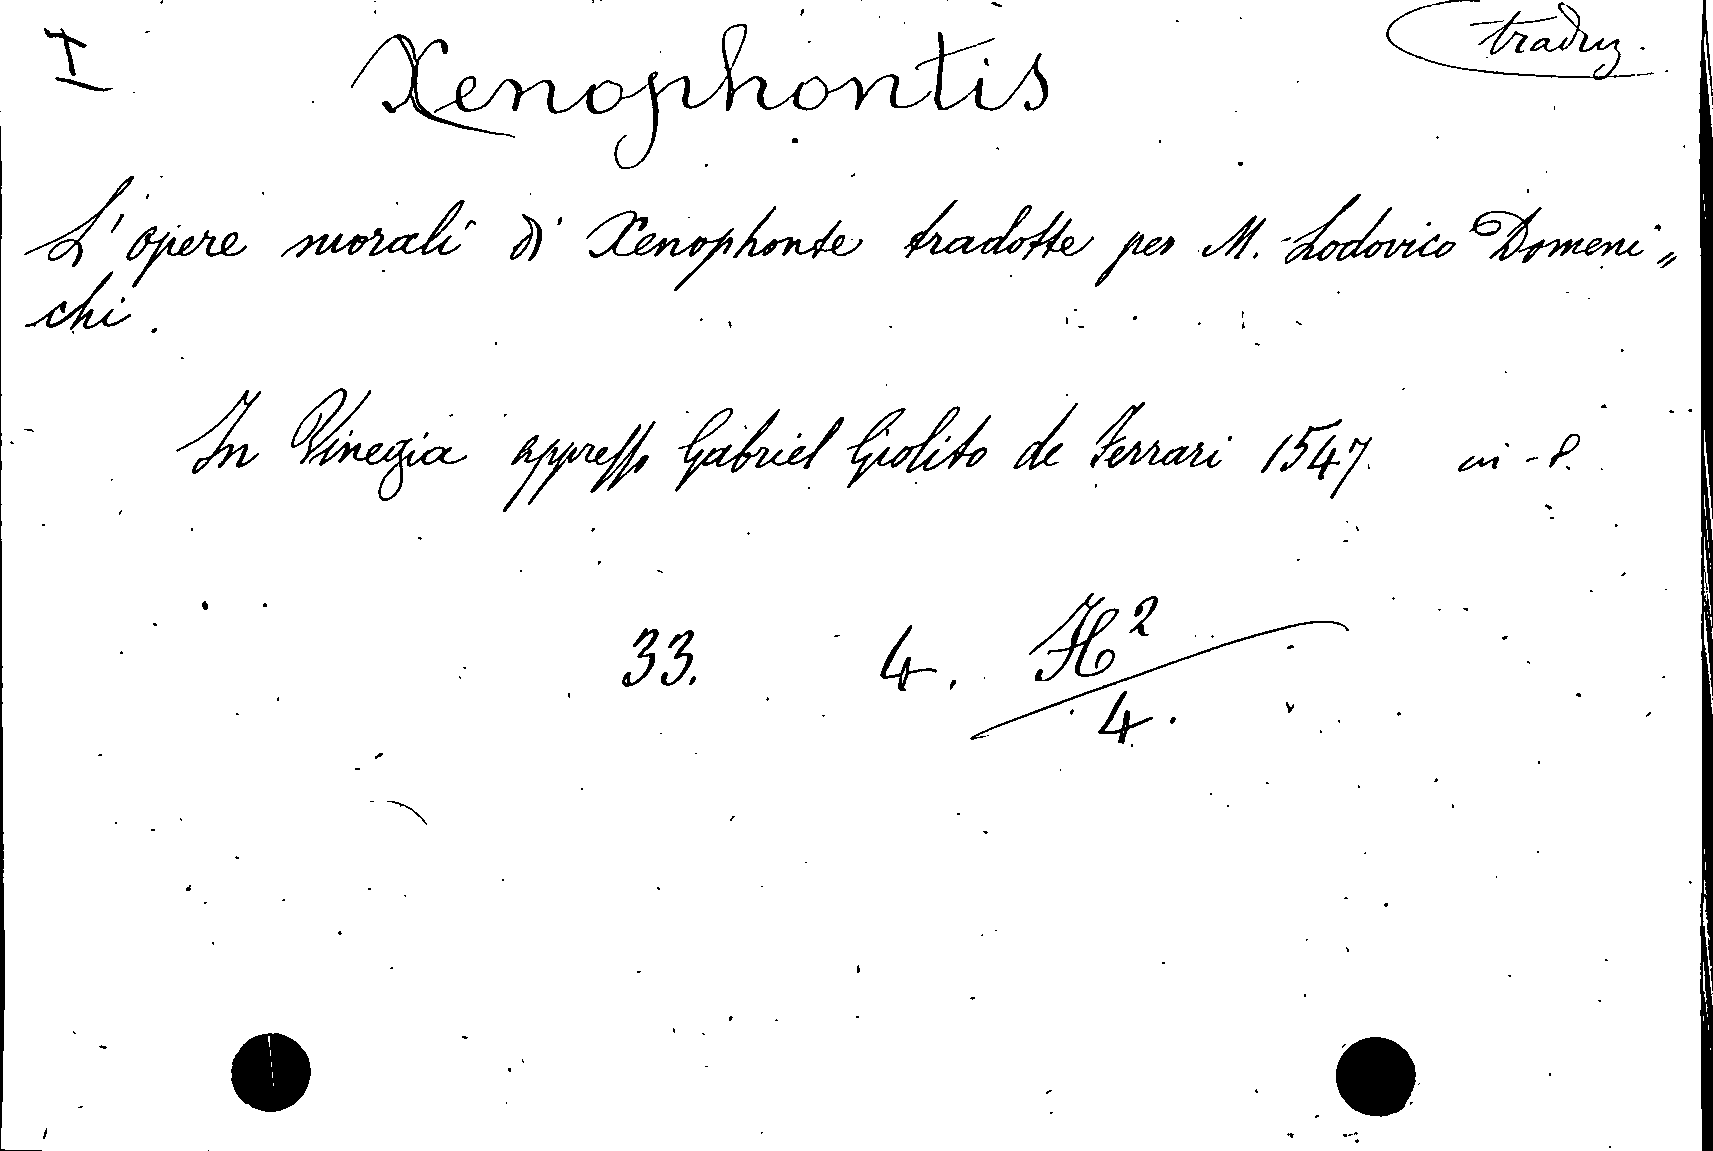 I
Xenophontis
traduz.
L'opere morali di Xenophonte tradotte per M. Lodovico Domeni„
chi.
In Vinegia appresso Gabriel Giolito de Ferrari 1547. in-8.
33. 4. H²
4.